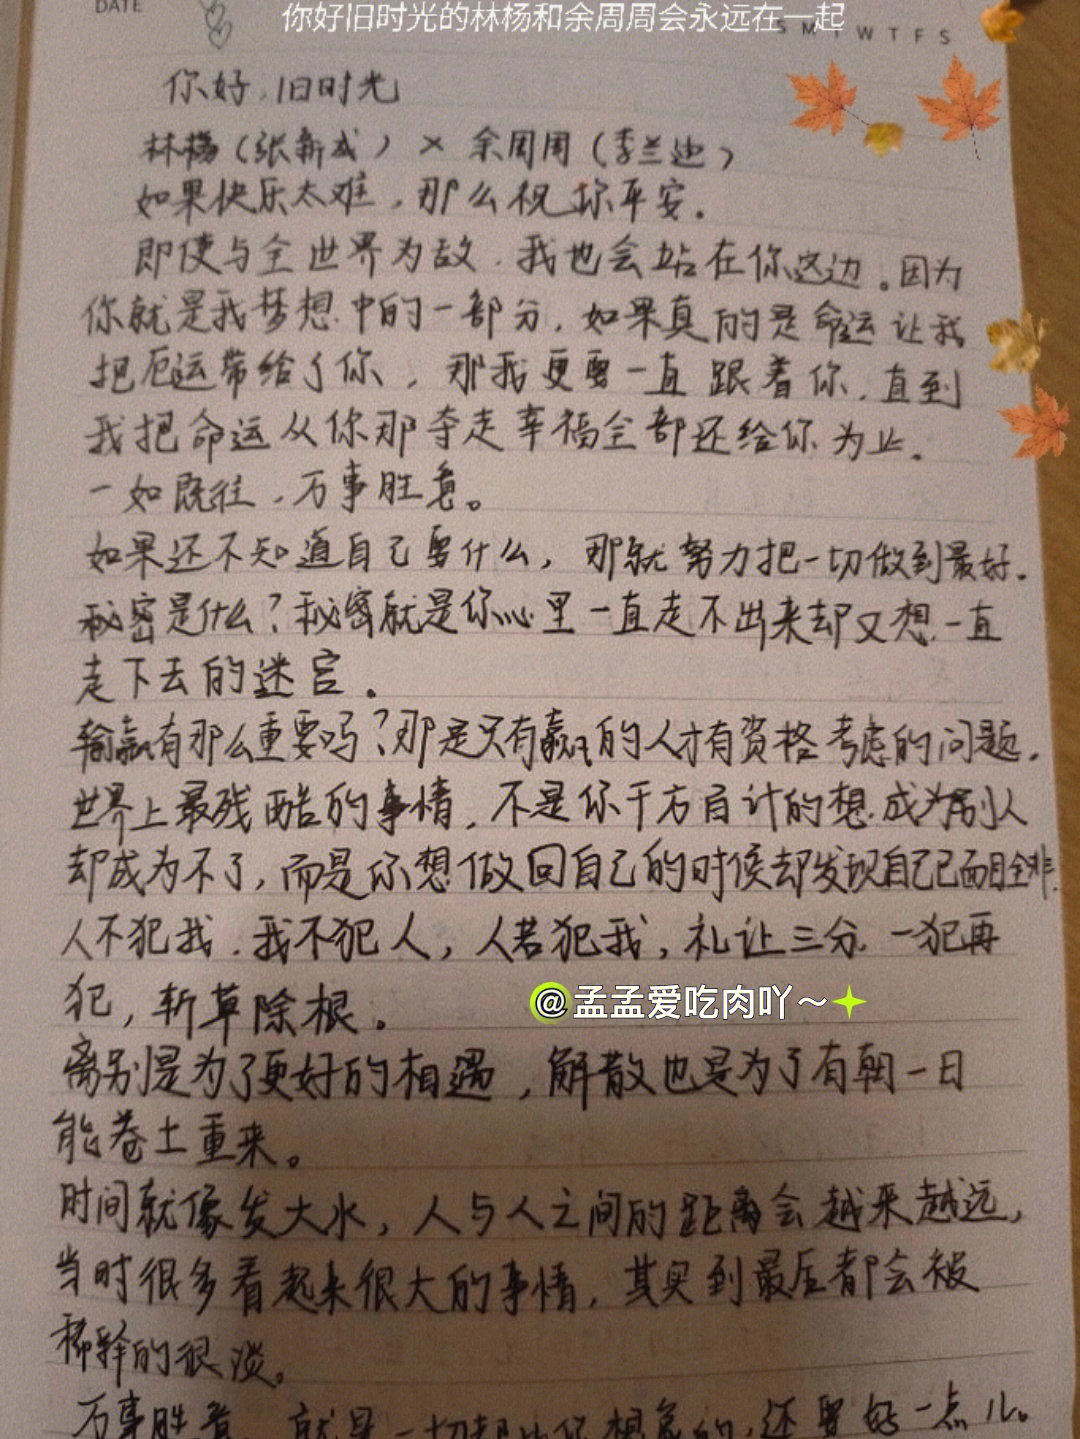 DATE
你好旧时光的林杨和余周周会永远在一起
S M T W T F S
你好，旧时光
林杨（张新成）× 余周周（李兰迪）
如果快乐太难，那么祝你平安。
即使与全世界为敌，我也会站在你这边。因为
你就是我梦想中的一部分，如果真的是命运让我
把厄运带给了你，那我更要一直跟着你，直到
我把命运从你那夺走幸福全部还给你为止。
一如既往，万事胜意。
如果还不知道自己要什么，那就努力把一切做到最好。
秘密是什么？秘密就是你心里一直走不出来却又想一直
走下去的迷宫。
输赢有那么重要吗？那是只有赢的人才有资格考虑的问题。
世界上最残酷的事情，不是你千方百计的想成为别人
却成为不了，而是你想做回自己的时候却发现自己已面目全非。
人不犯我，我不犯人，人若犯我，礼让三分，一犯再
犯，斩草除根。
@孟孟爱吃肉吖～
离别是为了更好的相遇，解散也是为了有朝一日
能卷土重来。
时间就像发大水，人与人之间的距离会越来越远，
当时很多看起来很大的事情，其实到最后都会被
稀释的很淡。
万事胜意，就是一切都比你想象的，还要好一点儿。